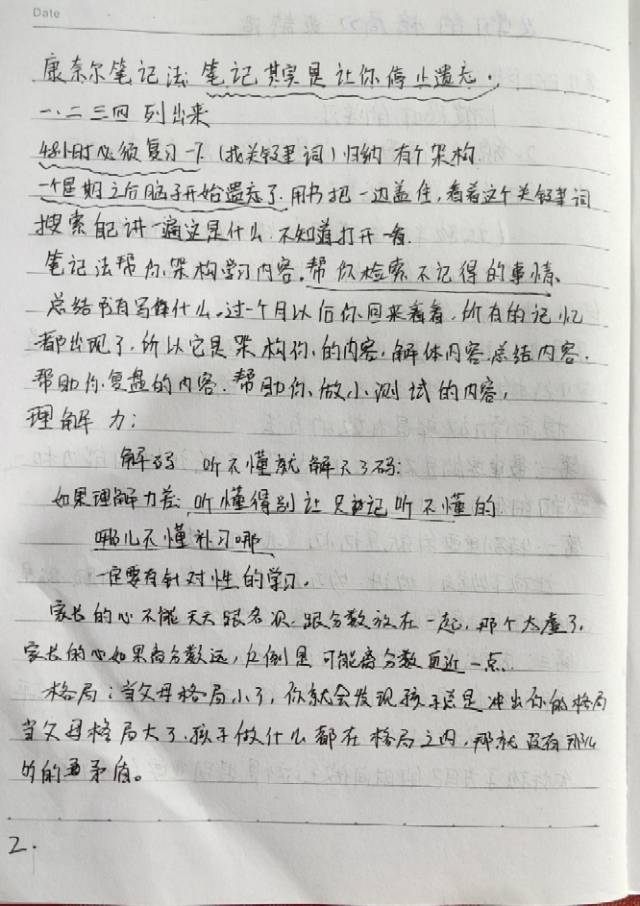 Date
康奈尔笔记法:笔记其实是让你停止遗忘.
一.二三四 列出来
48小时必须复习一下(找关键词)归纳 有个架构.
一个星期之后脑子开始遗忘了.用书把一边盖住,看着这个关键词
搜索自己讲一遍这是什么.不知道打开看.
笔记法帮你架构学习内容.帮你检索不记得的事情.
总结书有写得什么.过一个月以后你回来看看,所有的记忆
都出现了,所以它是架构你的内容,解体内容.总结内容.
帮助你复盘的内容.帮助你做小测试的内容,
理解力:
解码 听不懂就解不了码:
如果理解力差,听懂得别让 只记听不懂的
哪儿不懂补习哪
一定要有针对性的学习.
家长的心不能天天跟名次.跟分数放在一起,那个太虚了.
家长的心如果离分数远,反倒是可能离分数更近一点.
格局:当父母格局小了,你就会发现孩子总是冲出你的格局
当父母格局大了.孩子做什么都在格局之内,那就没有那么
多的矛盾。
2.